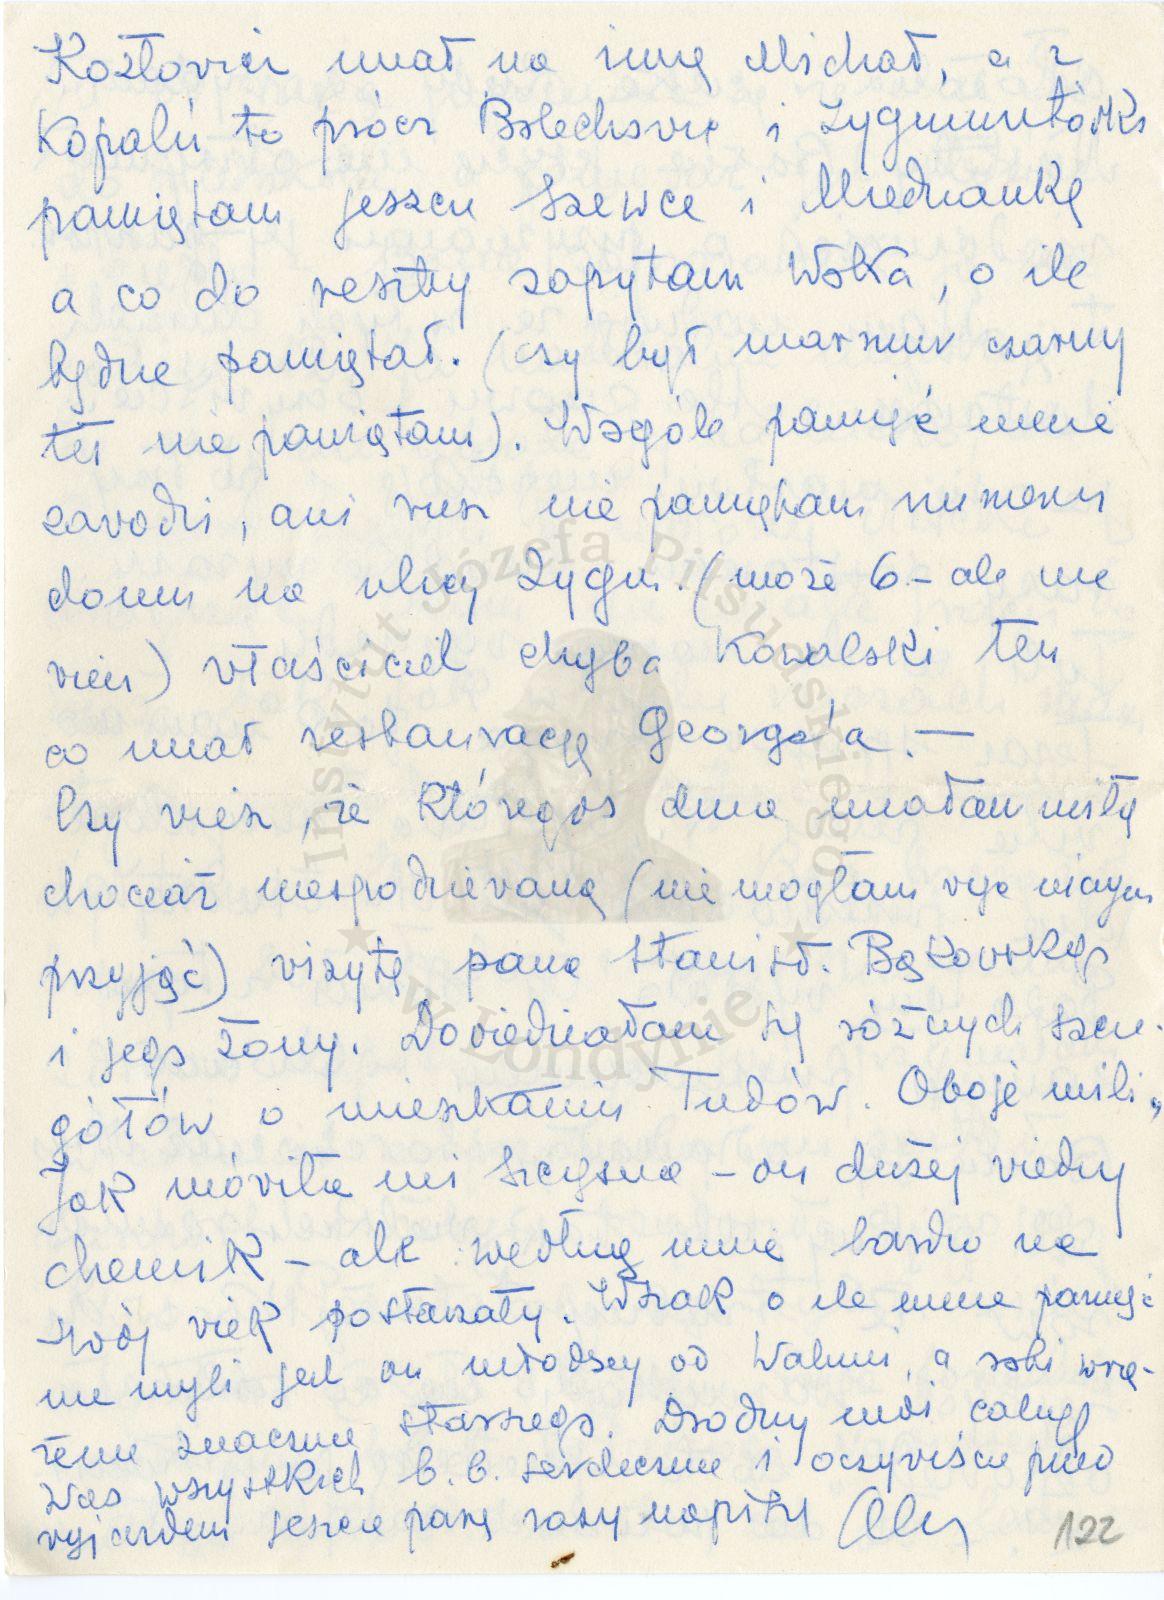 Kozłowicz miał na imię Michał, a z
Kopalń to prócz Bolechowic i Zygmuntówki
pamiętam jeszcze Szewce i Miedziankę
a co do reszty zapytam Wolka, o ile
będzie pamiętał. (czy był marmur czarny
też nie pamiętam). Wogóle pamięć mnie
zawodzi, ani wiesz nie pamiętam numeru
domu na ulicy Zygm. (może 6 – ale nie
wiem) właściciel chyba Kowalski ten
co miał restaurację George'a. —
Czy wiesz, że któregoś dnia miałam miłą
chociaż niespodziewaną (nie mogłam więc niczym
przyjąć) wizytę pana Stanisł. Bąkowskiego
i jego żony. Dowiedziałam się różnych szcze-
gółów o mieszkaniu Tudów. Oboje mili,
Jak mówiła mi Szczysna – on dużej wiedzy
chemik – ale według mnie bardzo na
swój wiek postarzały. Wszak o ile mnie pamięć
nie myli jest on młodszy od Waluni, a robi wra-
żenie znacznie starszego. Drodzy moi całuję
Was wszystkich b. b. serdecznie i oczywiście przed
wyjazdem jeszcze parę razy napiszę
122
Instytut Józefa Piłsudskiego
w Londynie